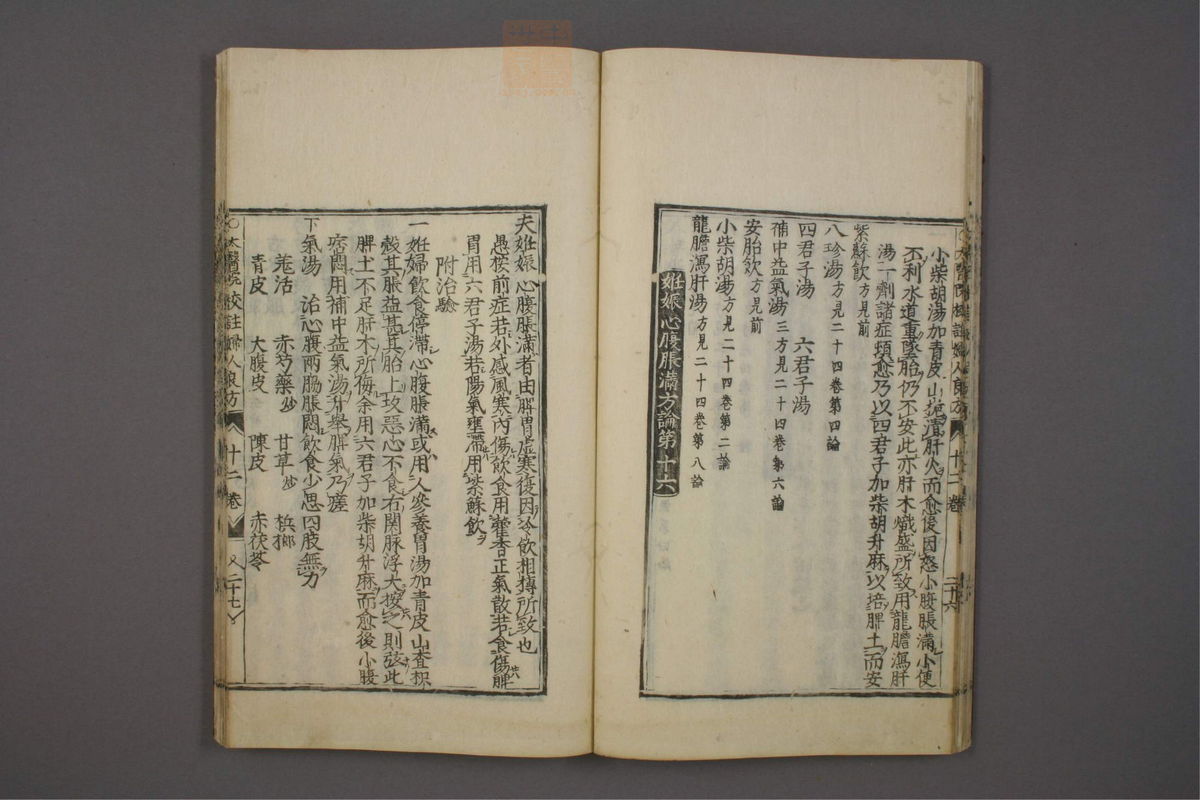 小柴胡湯加青皮山梔清肝火而愈後因怒小腹脹滿小便
不利水道重墜胎仍不安此亦肝木熾盛所致用龍膽瀉肝
湯一劑諸症頓愈乃以四君子加柴胡升麻以培脾土而安
紫蘇飲方見前
八珍湯方見二十四卷第四論
四君子湯 六君子湯
補中益氣湯三方見二十四卷第六論
安胎飲方見前
小柴胡湯方見二十四卷第二論
龍膽瀉肝湯方見二十四卷第八論
姙娠心腹脹滿方論第十六
夫姙娠心腹脹滿者由脾胃虛寒復因冷飲相搏所致也
愚按前症若外感風寒內傷飲食用藿香正氣散若食傷脾
胃用六君子湯若陽氣壅滯用紫蘇飲
附治驗
一姙婦飲食停滯心腹脹滿或用人參養胃湯加青皮山查枳
殼其脹益甚其胎上攻惡心不食右關脉浮大按之則弦此
脾土不足肝木所侮余用六君子加柴胡升麻而愈後小腹
痞悶用補中益氣湯升舉脾氣乃瘥
下氣湯 治心腹兩脇脹悶飲食少思四肢無力
羗活 赤芍藥炒 甘草炒 梹榔
青皮 大腹皮 陳皮 赤茯苓
○太醫院校註婦人良方 十二卷 又二十七